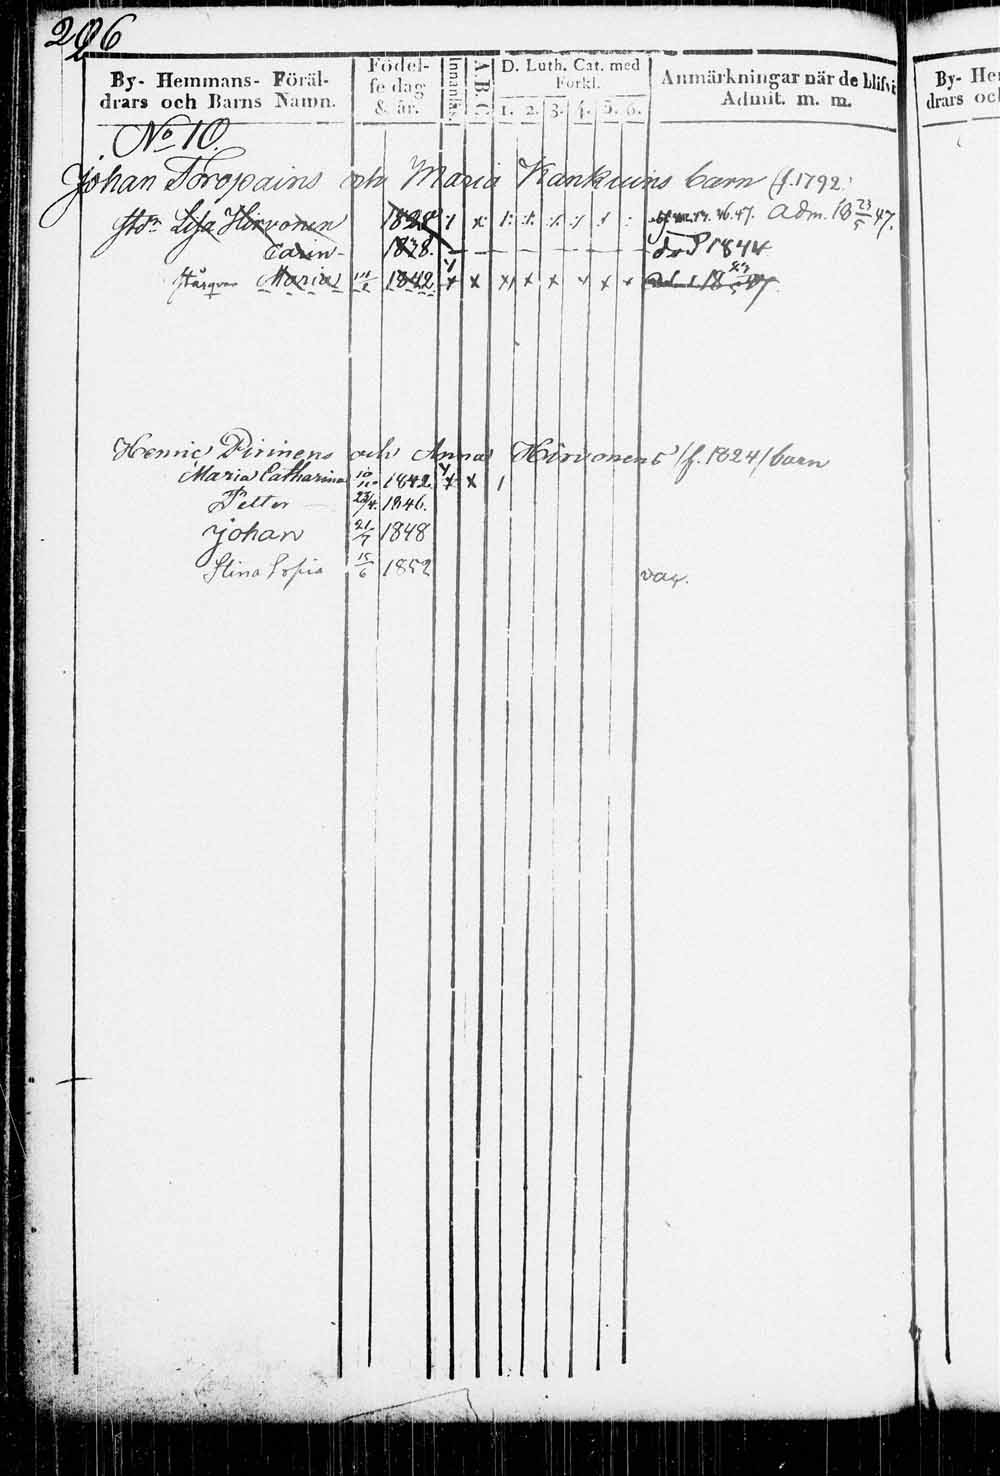 206
By- Hemmans- Föräl-
drars och Barns Namn.
Födel-
se dag
& år.
Innanläs.
A B C.
D. Luth. Cat. med
Förkl.
1. 2. 3. 4. 5. 6.
Anmärkningar när de blifvit
Admit. m. m.
By- He
drars och
No 10.
Johan Toropains och Maria Kankuins barn (f. 1792.
Lisa Hirvonen 1828 46.47. Adm. 18 23/5 47.
Carin 1838. död 1844
Maria 1842
Henric Pirinens och Anna Hirvonens /f. 1824/ barn
Maria Catharina 1842
Petter 23/4. 1846.
Johan 21/7 1848
Stina Sofia 15/6 1852 vac.